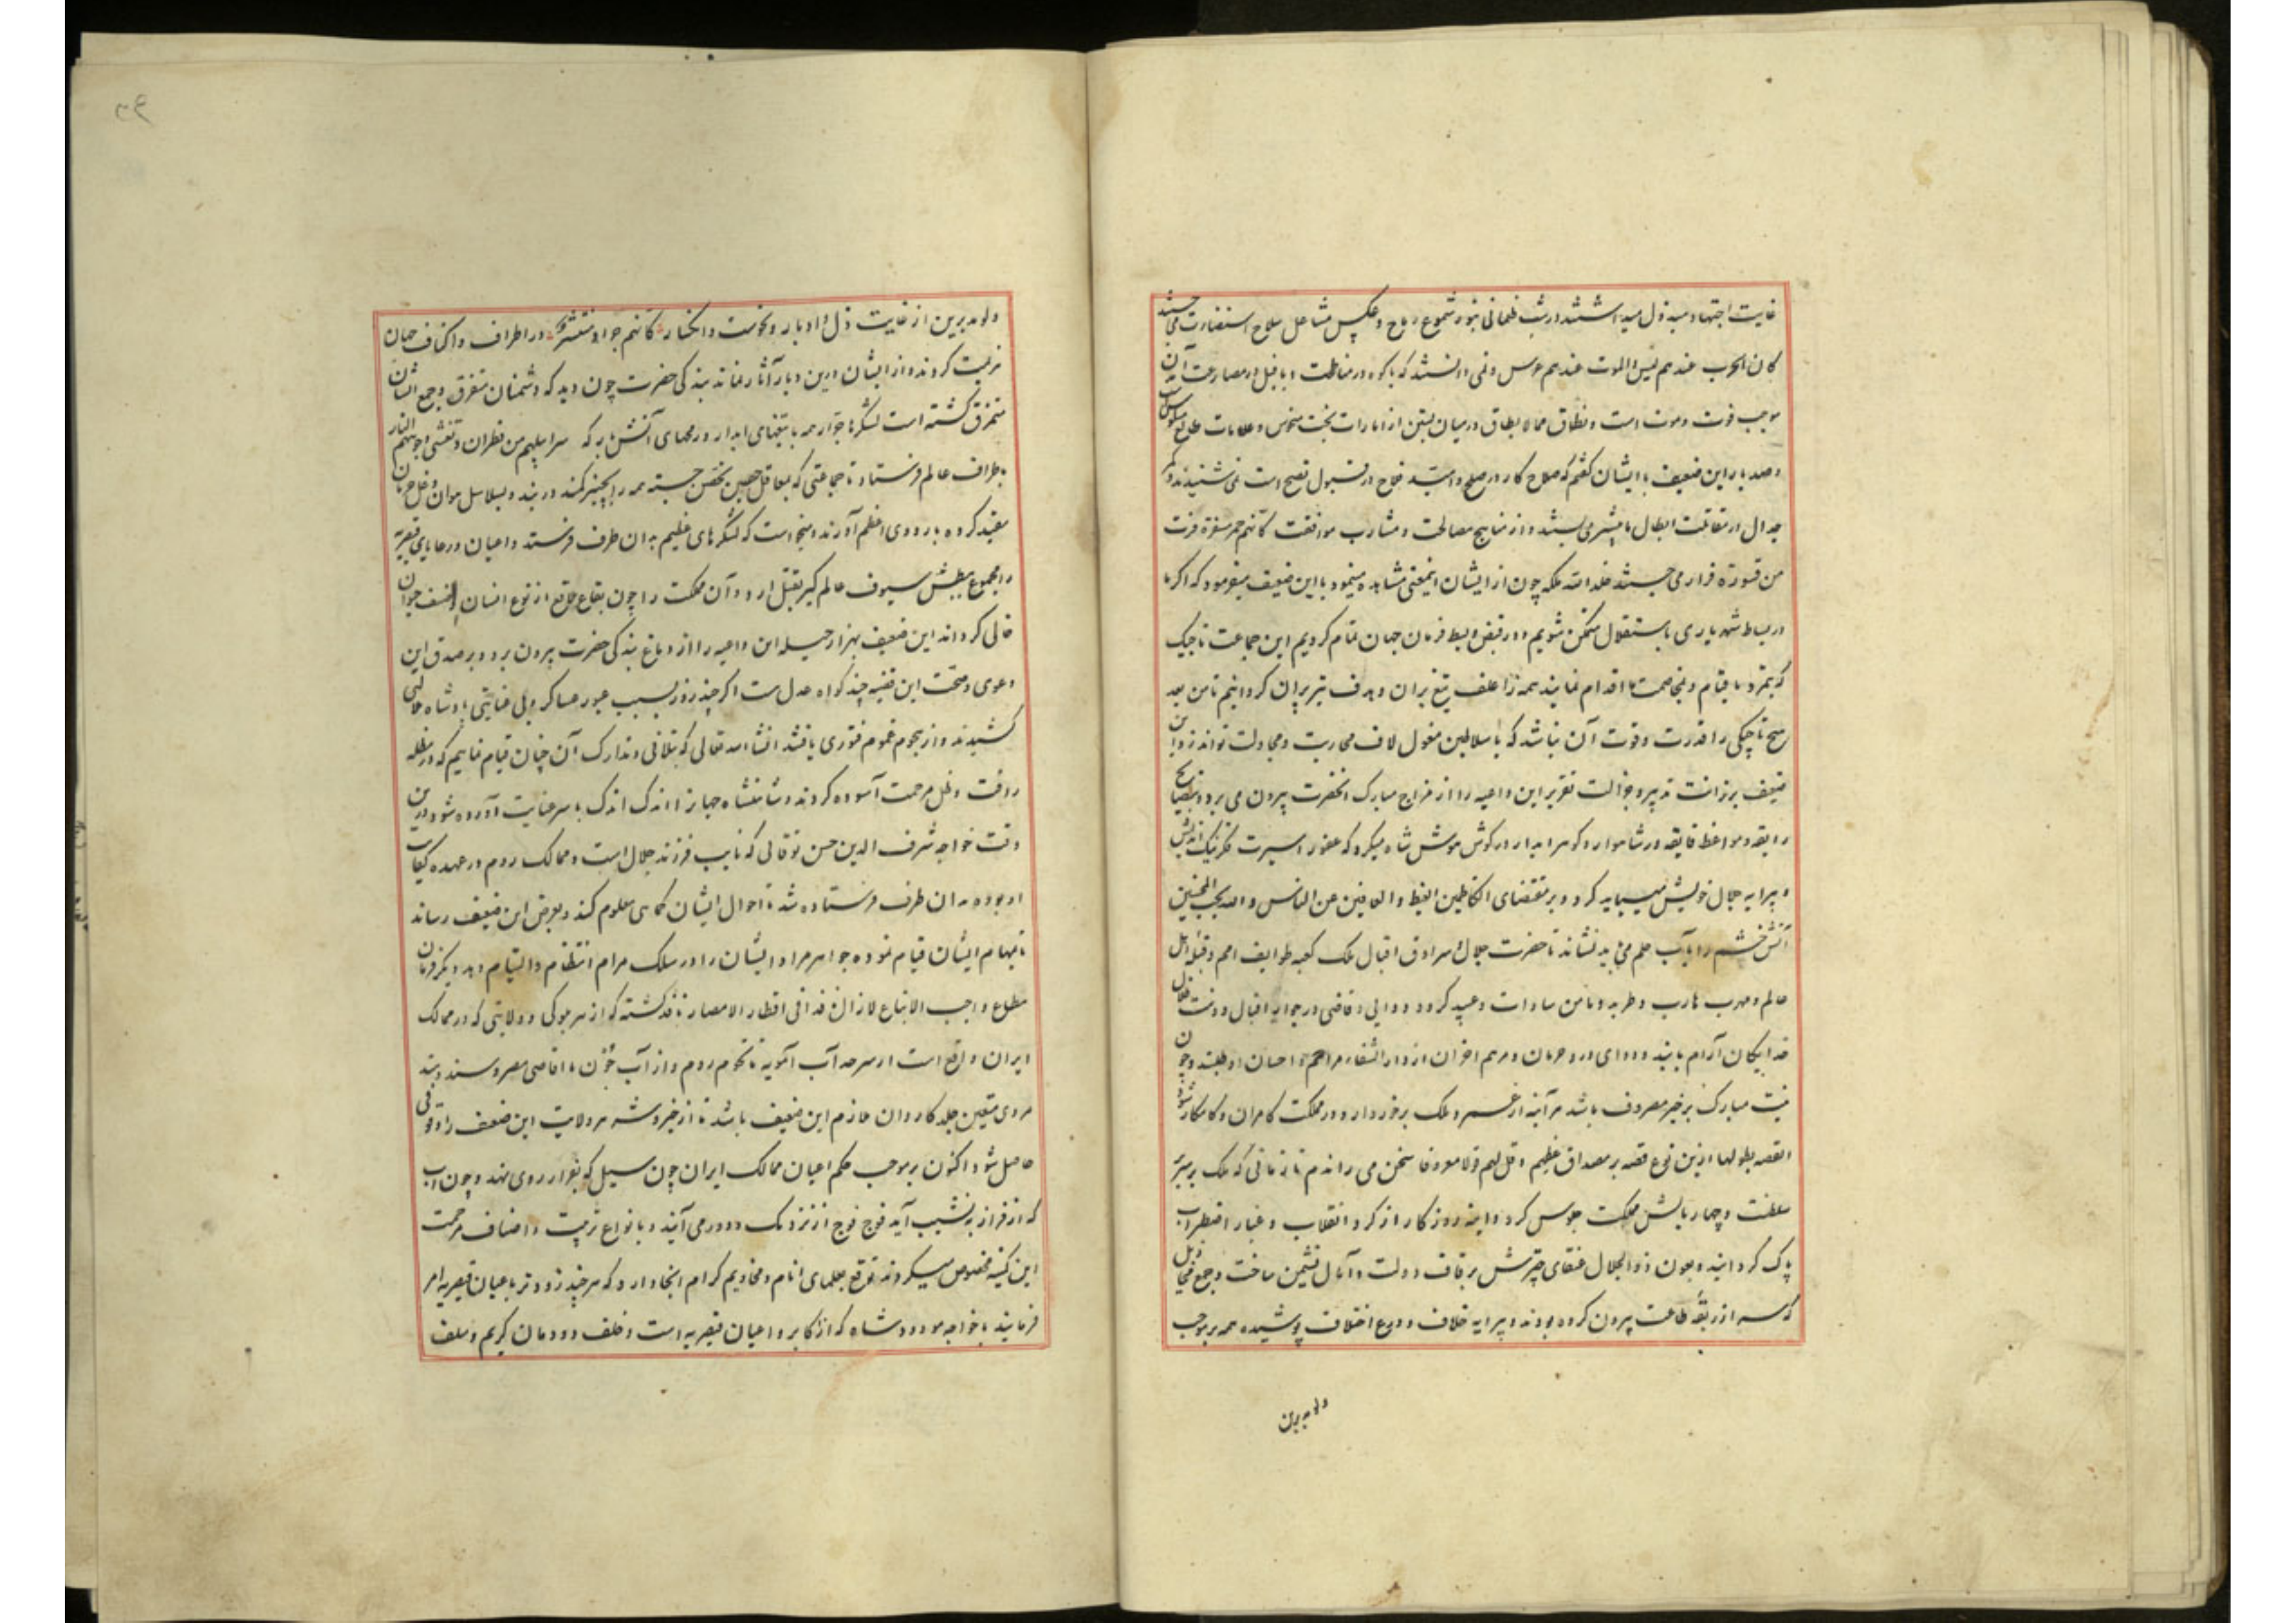 غایت اجتهاد مبذول میداشتند و در شب ظلمانی بنور شموع رماح و عکس مشاعل سلاح استضاءت می جستند
کان الحرب عندهم لیس والموت عندهم عرس ونمی دانستند که با کوه در مناطحت و با فیل در مصارعت آمدن
موجب فوت و موت است و نطاق مما لا یطاق در میان بستن از امارات بخت منحوس و علامات طالع
و صد بار این ضعیف با ایشان گفتم که صلاح کار در صلح و امید نجاح در قبول نصح است نمی شنیدند و کمر
جدال در مقاتلت ابطال ما بیشتر می بستند و از مناهج مصالحت و مشارب موافقت کانهم حمر مستنفرة فرت
من قسورة فرار می جستند خلد الله ملکه چون از ایشان اینمعنی مشاهده مینمود با این ضعیف میفرمود که اگر ما
در بساط شهریاری باستقلال متمکن شویم و در قبض و بسط فرمان جهان تمام کردیم این جماعت تاجیک
که بتمرد ما قیام و بمخاصمت ما اقدام نمایند همه را علف تیغ بران و هدف تیر پران کردانیم تا من بعد
هیچ تاجیکی را قدرت و قوت آن نباشد که با سلاطین مغول لاف محاربت و مجادلت تواند زد و این
ضعیف برزانت تدبیر و جزالت تقریر این داعیه را از مزاج مبارک آنحضرت بیرون می برد و بنصایح
رایقه و مواعظ فایقه در شاهوار و کوهر ابدار در کوش هوش شاه میکرد که عفو را سیرت فکر نیک اندیش
و پیرایه جلال خویش میباید کرد و بر مقتضای الکاظمین الغیظ والعافین عن الناس والله یحب المحسنین
آتش خشم را بآب حلم می باید نشاند تا حضرت جلال و سرادق اقبال ملک کعبه طوایف امم و قبله اهل
عالم و مهرب هارب و طربه و مامن سادات و عبید کردد و والی و قاضی در جوار اقبال و دست ظلال
خدایکان آرام یابند و دوای درد حرمان و مرهم احزان از دار الشفاء مراحم و احسان او طلبند و چون
نیت مبارک بر خیر مصروف باشد هر آینه از عمر و ملک برخوردار و در مملکت کامران و کامکار شود
القصه بطولها ازین نوع قصه بر مصداق عظهم و قل لهم قولا معروفا سخن می راندم تا زمانی که ملک بر سریر
سلطنت و چهار بالش مملکت جلوس کرد و اینه روزکار از کرد انقلاب و غبار اضطراب
پاک کردانید و بعون ذو الجلال عنقای چترش بر قاف دولت و آمال نشیمن ساخت و جمع
که سر از ربقه طاعت بیرون کرده بودند و پیرایه خلاف و دروع اختلاف پوشیده همه بر موجب
ولو مدبرین
ولو مدبرین از غایت ذل و ادبار و نحوست و انکسار کانهم جراد منتشر در اطراف و اکناف جهان
هزیمت کردند و از ایشان درین دیار آثار نماند بندکی حضرت چون دید که دشمنان متفرق و جمع ایشان
متمزق کشته است لشکر جرار همه با تیغهای ابدار و رمحهای آتش بار که سرابیلهم من قطران و تغشی وجوههم النار
باطراف عالم فرستاد تا جماعتی که بمعاقل حصین تحصن جسته همه را بچنبر کمند در بند و بسلاسل هوان و غل حرمان
مقید کرده باردوی اعظم آورند و میخواست که لشکرهای عظیم به ان طرف فرستد و اعیان و رعایای قیصریه
را مجموع ببطش سیوف عالم کیر بقتل ارد و آن مملکت را چون بقاع بلاقع از نوع انسان و صنف حیوان
خالی کرداند این ضعیف بهزار حیله این داعیه را از دماغ بندکی حضرت بیرون برد و بر صدق این
دعوی و صحت این قضیه چند کواه عدل است اکر چند روز بسبب عبور عساکر و بی عنایتی پادشاه المی
کشیدند و از هجوم غموم فتوری یافتند انشا الله تعالی که بتلافی و تدارک آن چنان قیام نماییم که در مظله
رافت و ظل مرحمت آسوده کردند و شاهنشاه جهان را اندک اندک با سر عنایت آورده شود درین
وقت خواجه شرف الدین حسن نوقانی که نایب فرزند جلال است و ممالک روم در عهده کفایت
او بوده به ان طرف فرستاده شد تا احوال ایشان کماهی معلوم کند و بعرض این ضعیف رساند
تا بمهام ایشان قیام نموده جواهر مراد ایشان را در سلک مرام انتظام و التیام دهد دیکر فرمان
مطاع واجب الاتباع لا زال نفذا فی اقطار الامصار نافذ کشته که از هر موکی و ولایتی که در ممالک
ایران واقع است از سرحد آب آمویه تا تخوم روم و از آب جون تا اقاصی مصر و سند و هند
مردی متعین جلد کاردان ملازم این ضعیف باشد تا از خیر و شر هر ولایت این ضعیف را وقوفی
حاصل شود اکنون بر موجب حکم اعیان ممالک ایران چون سیل که بقرار روی نهد و چون آب
که از فراز به نشیب آید فوج فوج از نزدیک و دور می آیند و بانواع تربیت و اصناف مرحمت
این کمینه مخصوص میکردند توقع بعلمای انام و مخادیم کرام انجا دارد که هر چند زودتر باعیان قیصریه امر
فرمایند با خواجه مودود شاه که از اکابر و اعیان قیصریه است و خلف دودمان کریم و سلف